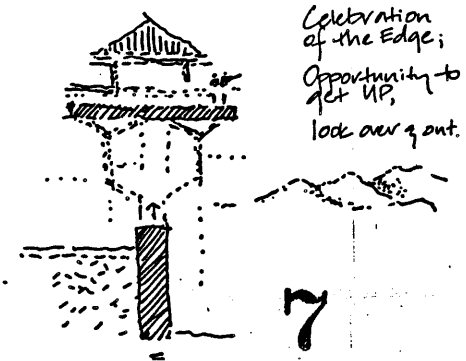 Celebration
of the Edge;
Opportunity to
get UP,
look over & out.
7